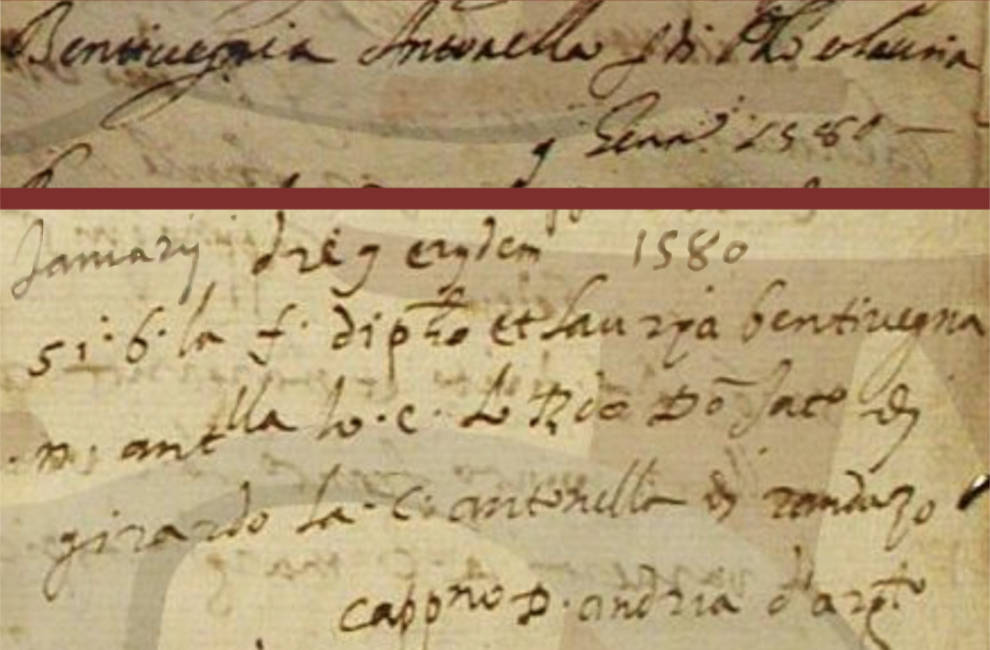 Bentivegnia Antonella f di Pho e Lauria
9 Genn.o 1580
January die 9 eiusdem 1580
si. b. la f. di pho et lauria bentivegna
n. antlla lo. c. lo Rdo Do Jaco di
girardo la. c. antonella di randazo
cappno D. andria d'